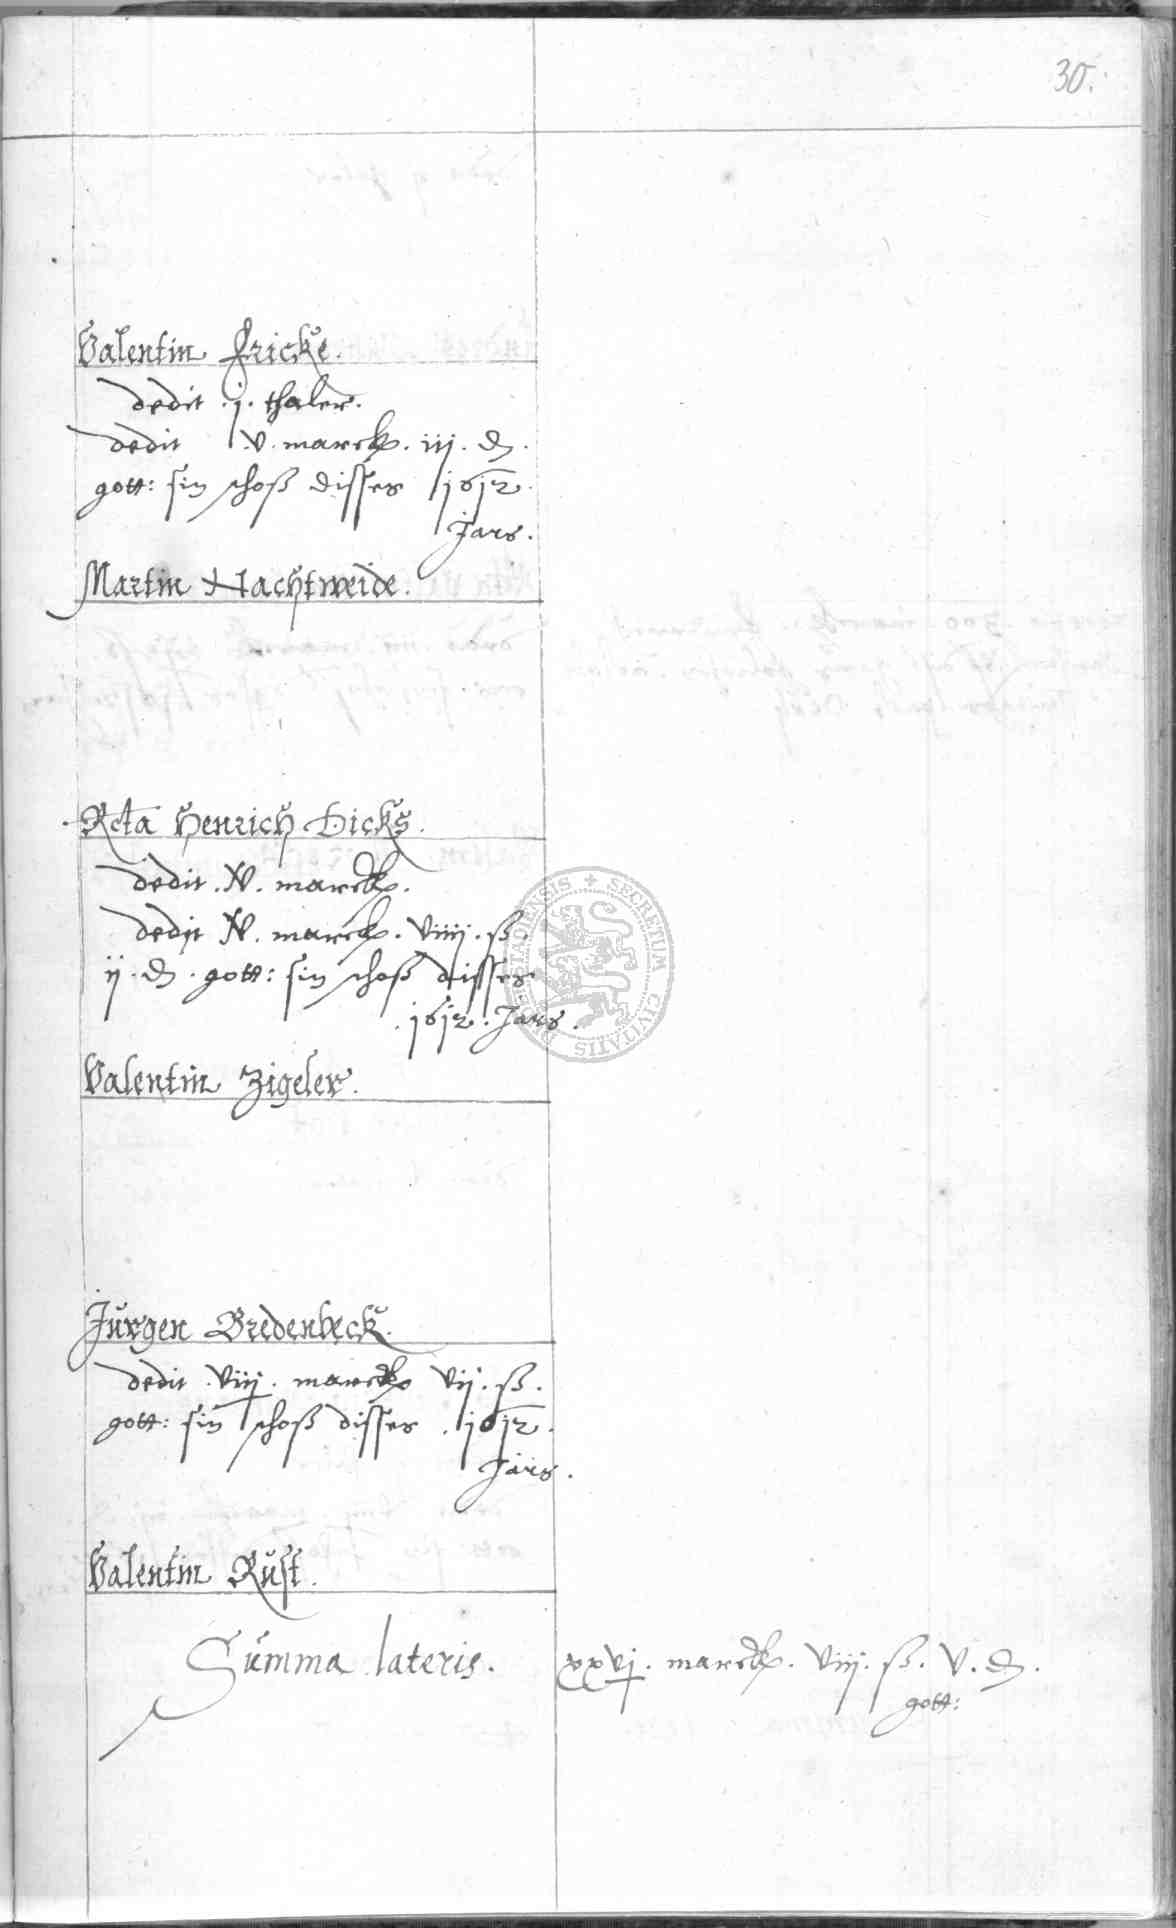 30.
Valentin Fricke.
dedit .j. thaler.
dedit .v. marck. iij. ₰.
gott: sin schoß disses 1612.
Jars.
Martin Nachtweide.
Rcta Henrich Dicks.
dedit . iv . marck.
dedit iv. marck. viiij. ß.
ij. ₰. gott: sin schoß disses
.1612. Jars.
Valentin Zigeler.
Jürgen Bredenbeck.
dedit .viij. marck vij. ß.
gott: sin schoß disses .1612.
Jars.
Valentin Rust.
Summa lateris. xxvj. marck. viij. ß. v. ₰.
gott:
SECRETUM CIVITATIS